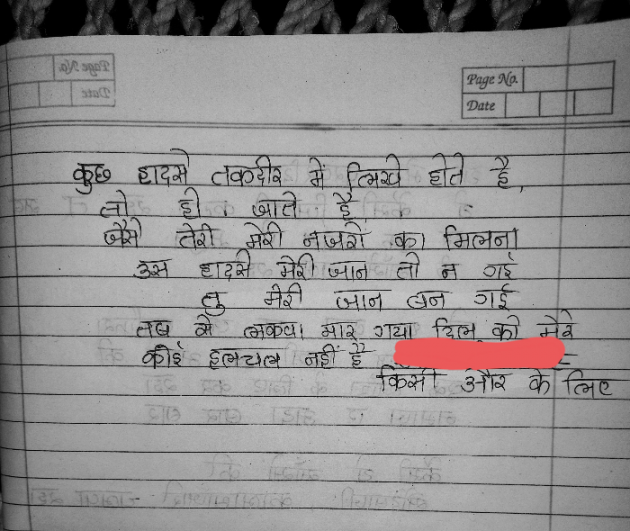 Page No.
Date
कुछ हादसे तकदीर में लिखे होते है,
तो हो जाते है
जैसे तेरी मेरी नजरों का मिलना
उस हादसे मेरी जान तो न गई
तु मेरी जान बन गई
तब से लकवा मार गया दिल को मेरे
कोई हलचल नहीं है
किसी और के लिए